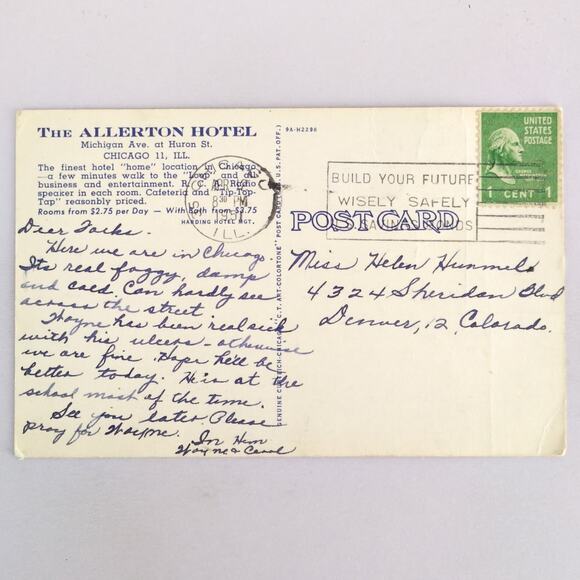 THE ALLERTON HOTEL
Michigan Ave. at Huron St.
CHICAGO 11, ILL.
The finest hotel "home" location in Chicago
—a few minutes walk to the "Loop" and all
business and entertainment. R. C. A. Radio
speaker in each room. Cafeteria and "Tip-Top-
Tap" reasonably priced.
Rooms from $2.75 per Day — With Bath from $3.75
HARDING HOTEL MGT.
Dear Folks.
Here we are in Chicago.
Its real foggy, damp
and cold. Can hardly see
across the street.
Wayne has been real sick
with his ulcers - otherwise
we are fine. Hope he'll be
better today. He is at the
school most of the time.
See you later. Please
pray for Wayne.
In Him
Wayne & Carol
9A-H2296
GENUINE CURTEICH-CHICAGO "C.T. ART-COLORTONE" POST CARD (REG. U.S. PAT. OFF.)
CHICAGO
8 30 PM
ILL.
BUILD YOUR FUTURE
WISELY SAFELY
SAVINGS BONDS
UNITED
STATES
POSTAGE
1 CENT 1
POST CARD
Miss Helen Hummel
4324 Sheridan Blvd
Denver, 12, Colorado.